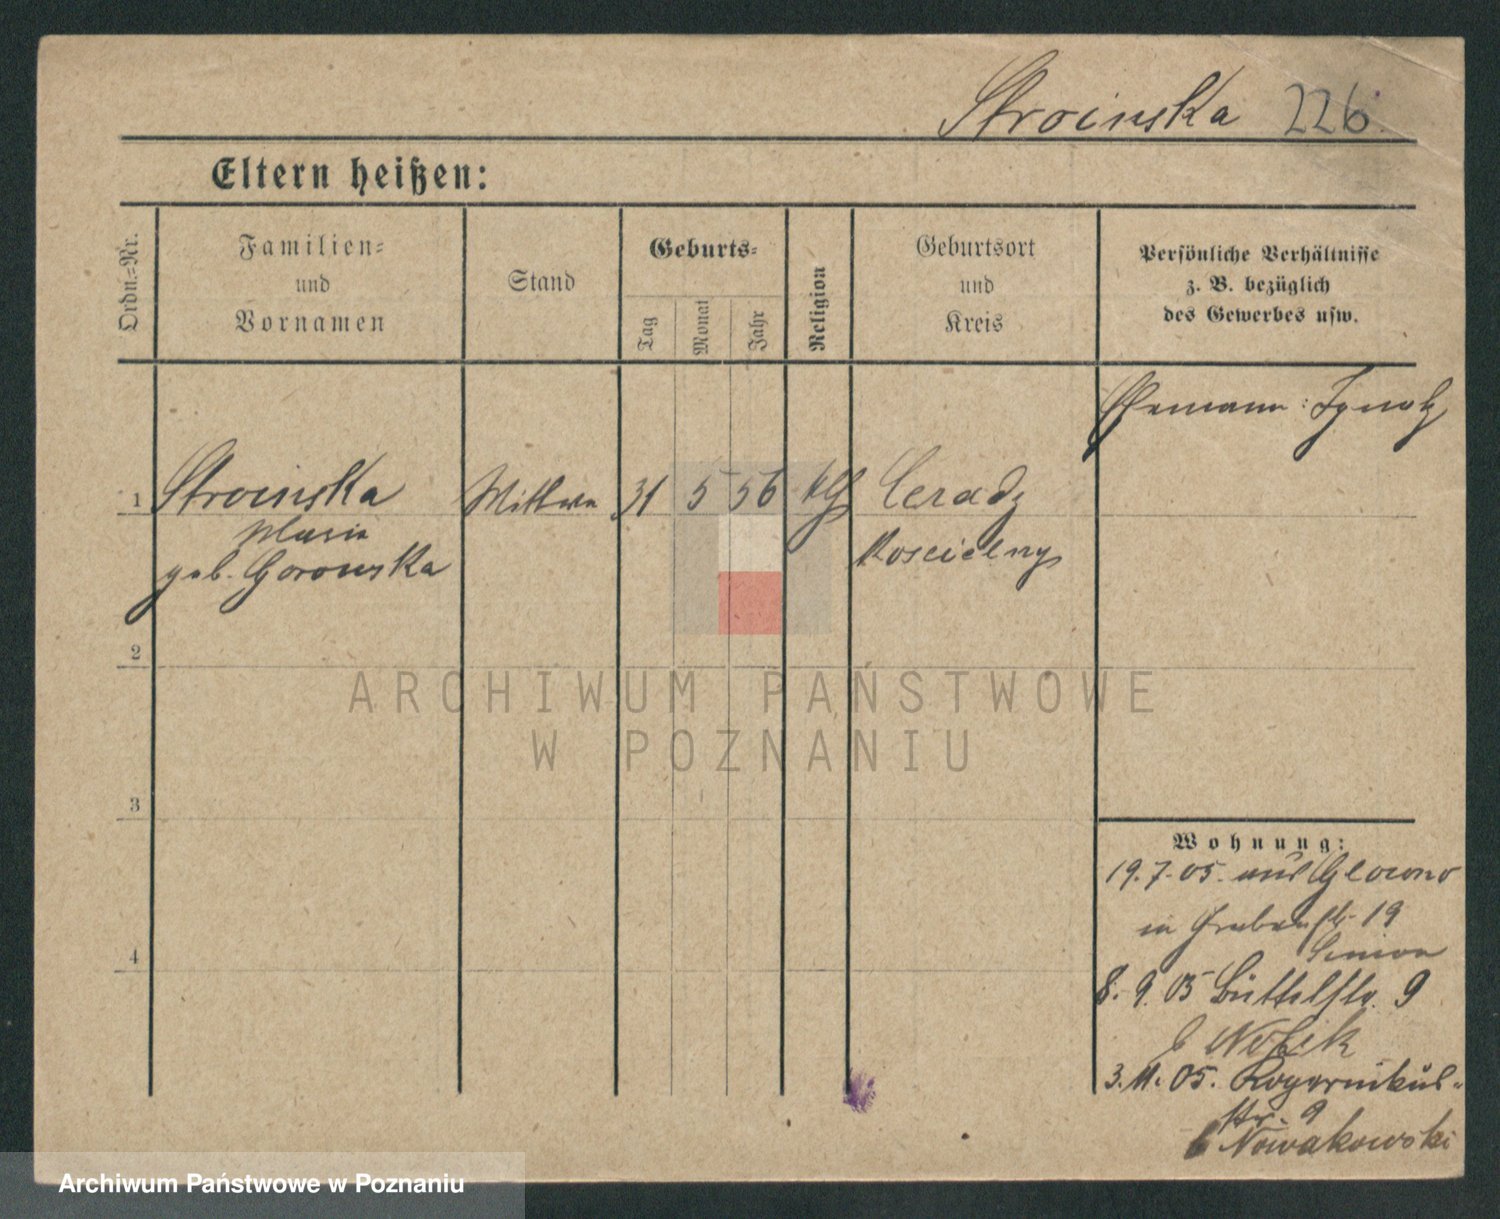 Stroinska 226
Eltern heißen:
Ordn.-Nr.
Familien-
und
Vornamen
Stand
Geburts-
Tag
Monat
Jahr
Religion
Geburtsort
und
Kreis
Persönliche Verhältnisse
z. B. bezüglich
des Gewerbes usw.
Ehemann: Ignatz
1 Stroinska Wittwe 31 5 56 kth Ceradz
Marie Koscielny
geb. Gorowska
2
ARCHIWUM PAŃSTWOWE
W POZNANIU
3
Wohnung:
19.7.05. aus Glowno
in Grabenstr. 19
Simon
4
8. 9. 05 Büttelstr. 9
b Nobik
3. 11. 05. Kopernikus-
str. 9
b Nowakowski
Archiwum Państwowe w Poznaniu